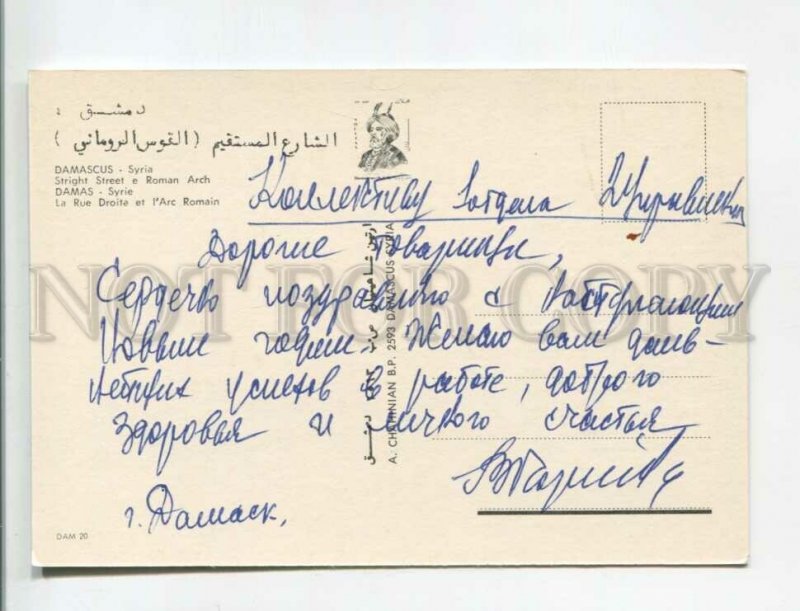 دمشق :
الشارع المستقيم (القوس الروماني)
DAMASCUS - Syria
Stright Street e Roman Arch
DAMAS - Syrie
La Rue Droite et l'Arc Romain
Коллективу I отдела
Дорогие товарищи,
Сердечно поздравляю с наступающим
Новым годом. Желаю вам даль-
нейших успехов в работе, доброго
здоровья и личного счастья
г. Дамаск,
DAM 20
A. CHAHINIAN B.P. 2593 DAMASCUS SYRIA
NOT FOR COPY